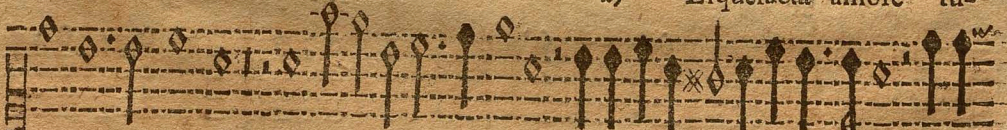 Liquefacta amore tu-